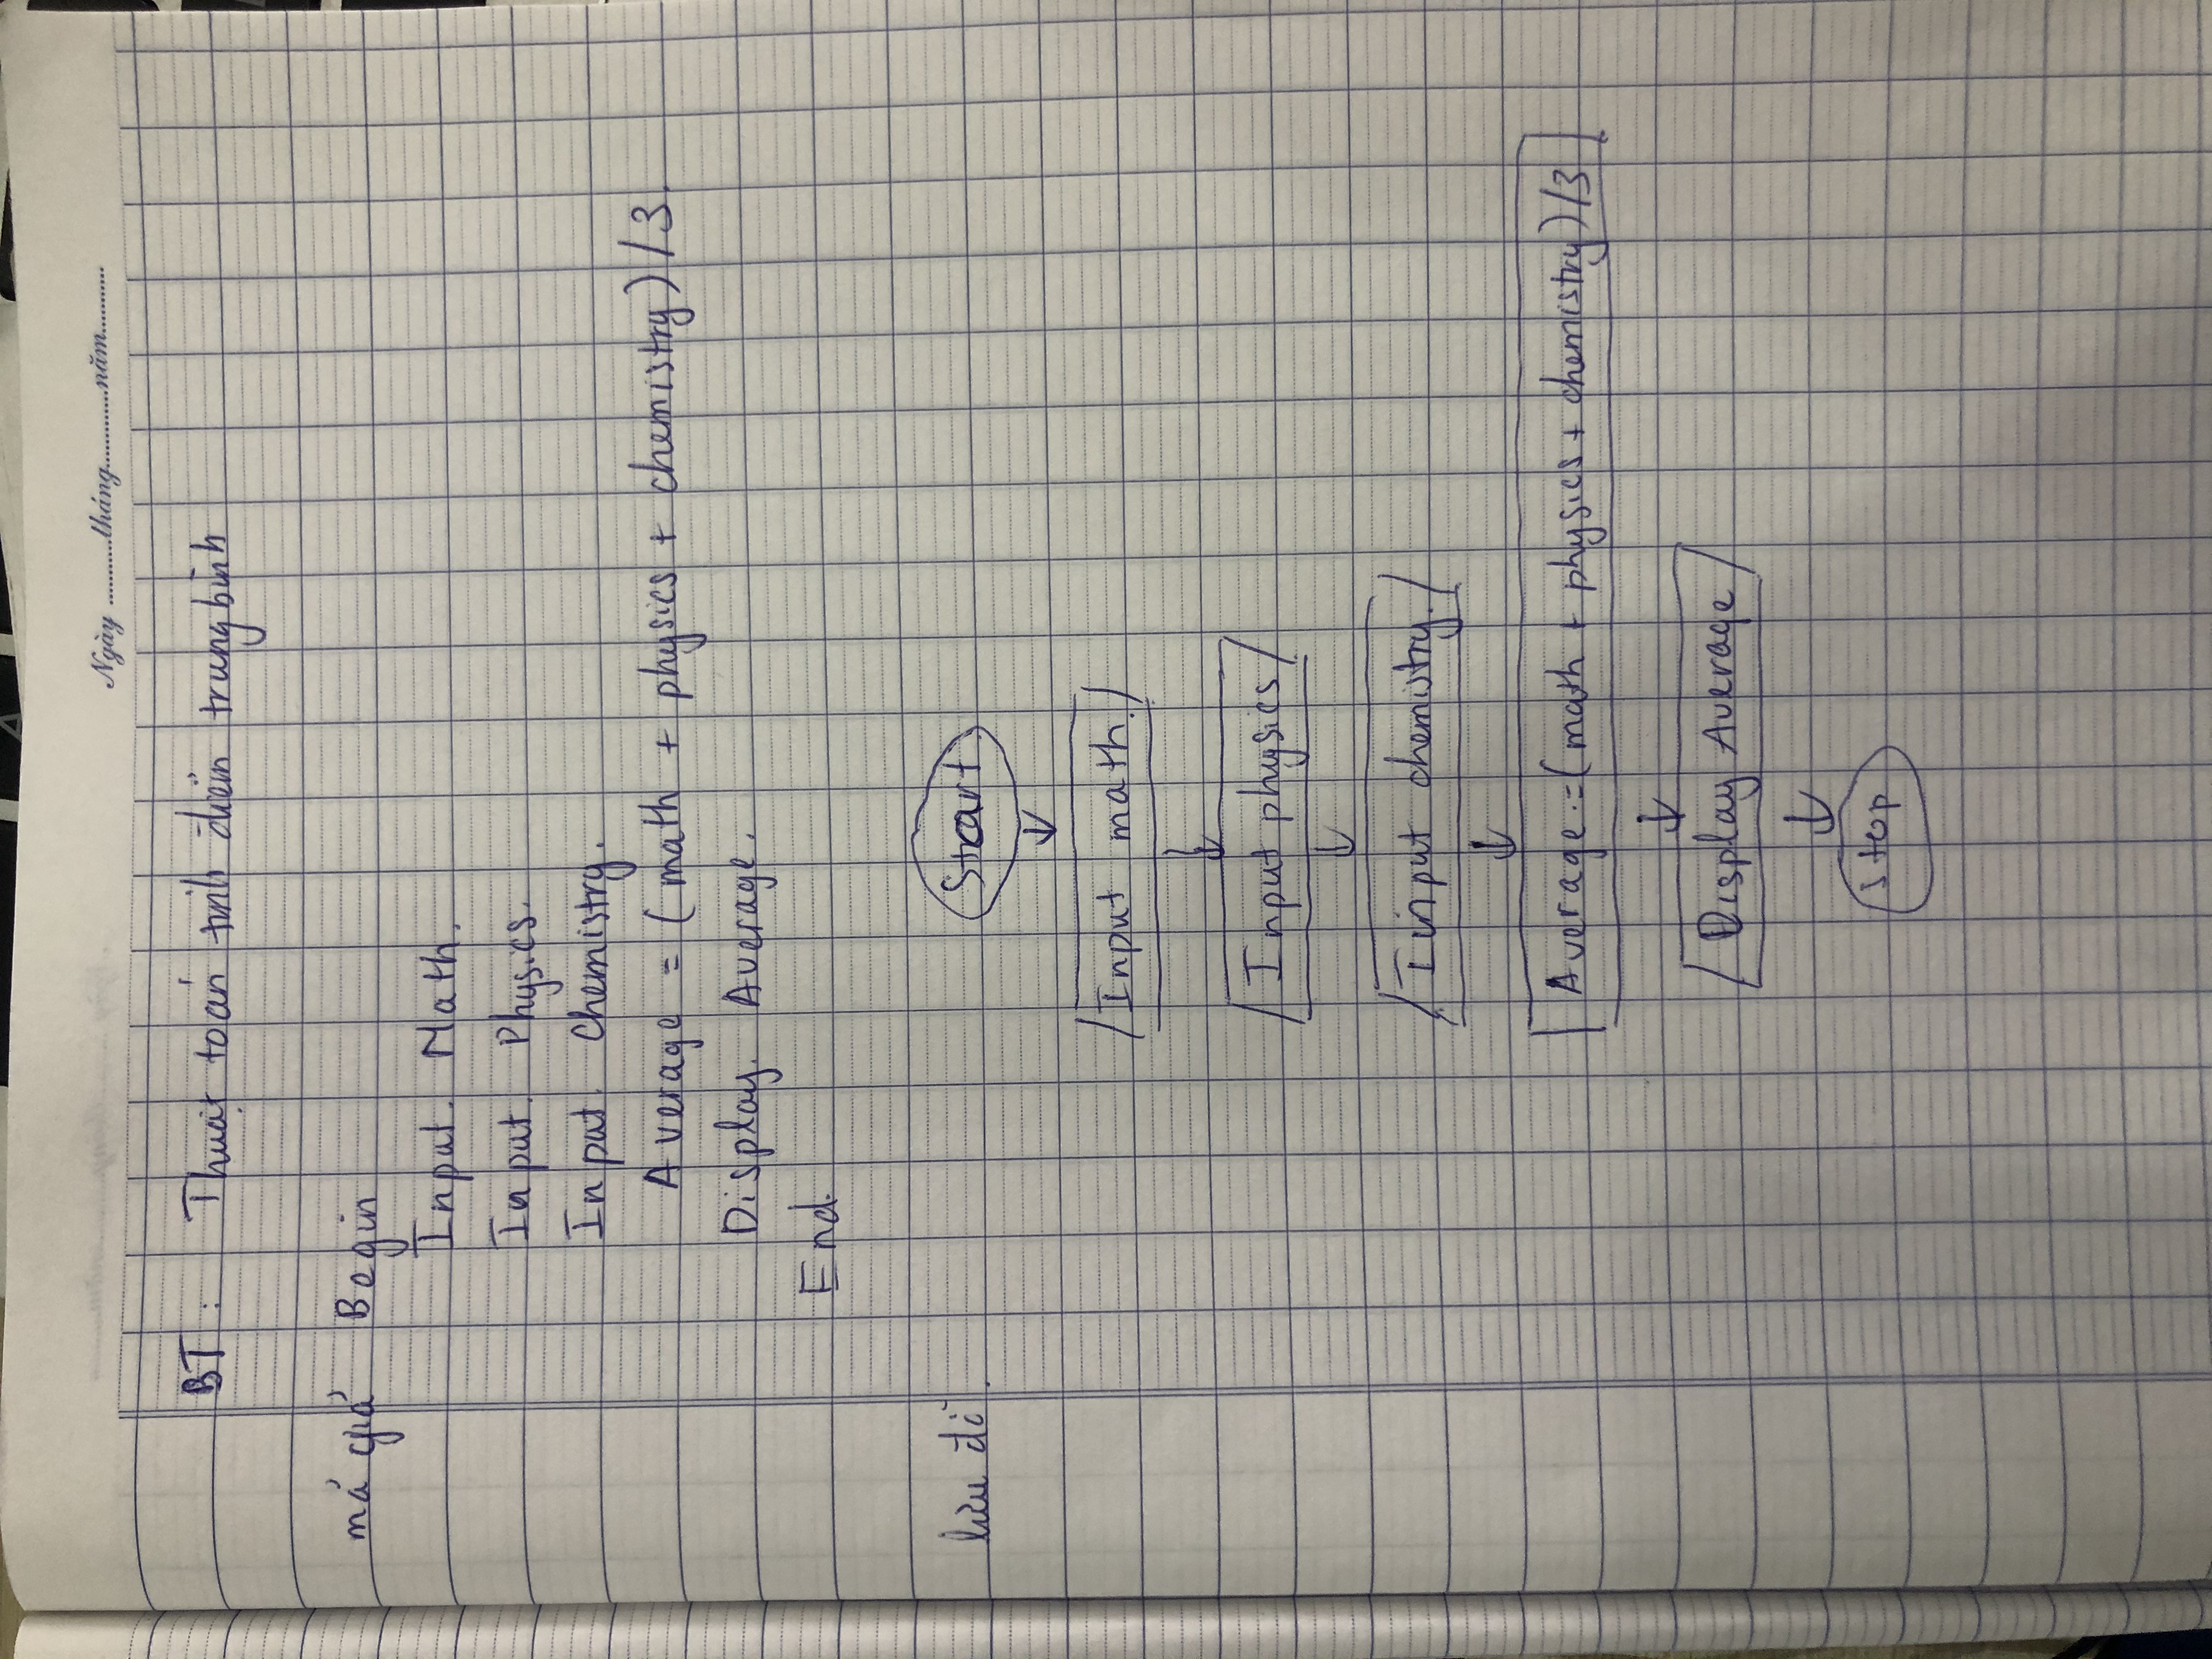 Ngày ...........tháng.............năm...........
BT : Thuật toán tính điểm trung bình
mã giả Begin
Input. Math.
Input. Physics.
Input. Chemistry.
Average = (math + physics + chemistry) / 3.
Display. Average.
End.
lưu đồ.
Start
Input math.
Input physics
Input chemistry.
Average = (math + physics + chemistry) / 3
Display Average
Stop